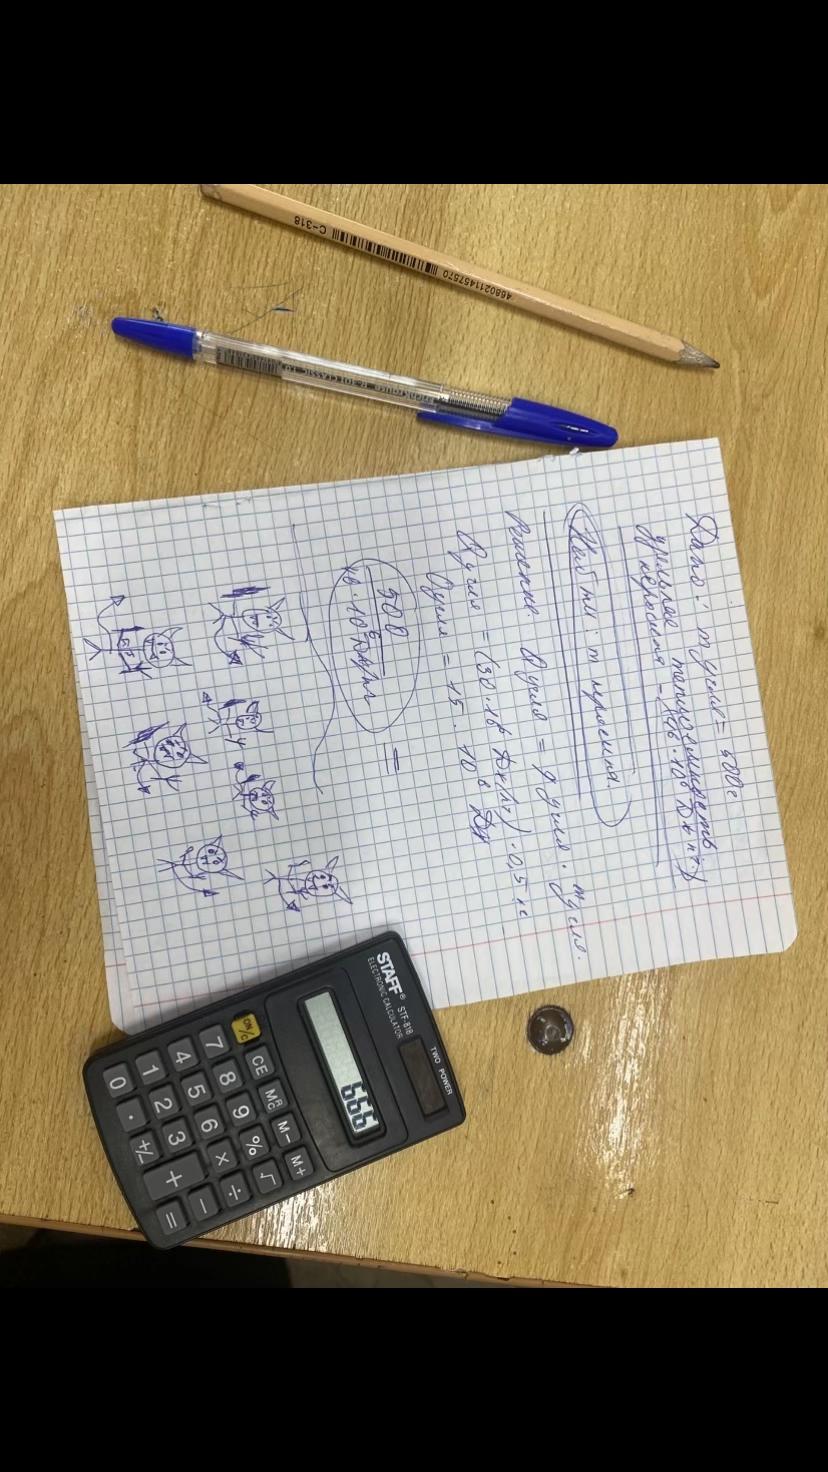 Дано: m угля = 500г
удельная теплоемкость
керосина = (46·10⁶ Дж кг)
Найти: m керосина.
Решение: Q угля = q угля · m угля.
Q угля = (30·10⁶ Дж/кг) · 0,5 кг
Q угля = 15 · 10⁶ Дж
500
46·10⁶ Дж/кг
=
С-318
4680211457570
ErichKrause R-301 CLASSIC 1.0
STAFF® STF-818
ELECTRONIC CALCULATOR
TWO POWER
666
ON/C CE MRC M− M+
7 8 9 % √
4 5 6 × ÷
1 2 3 + −
0 . +/− =